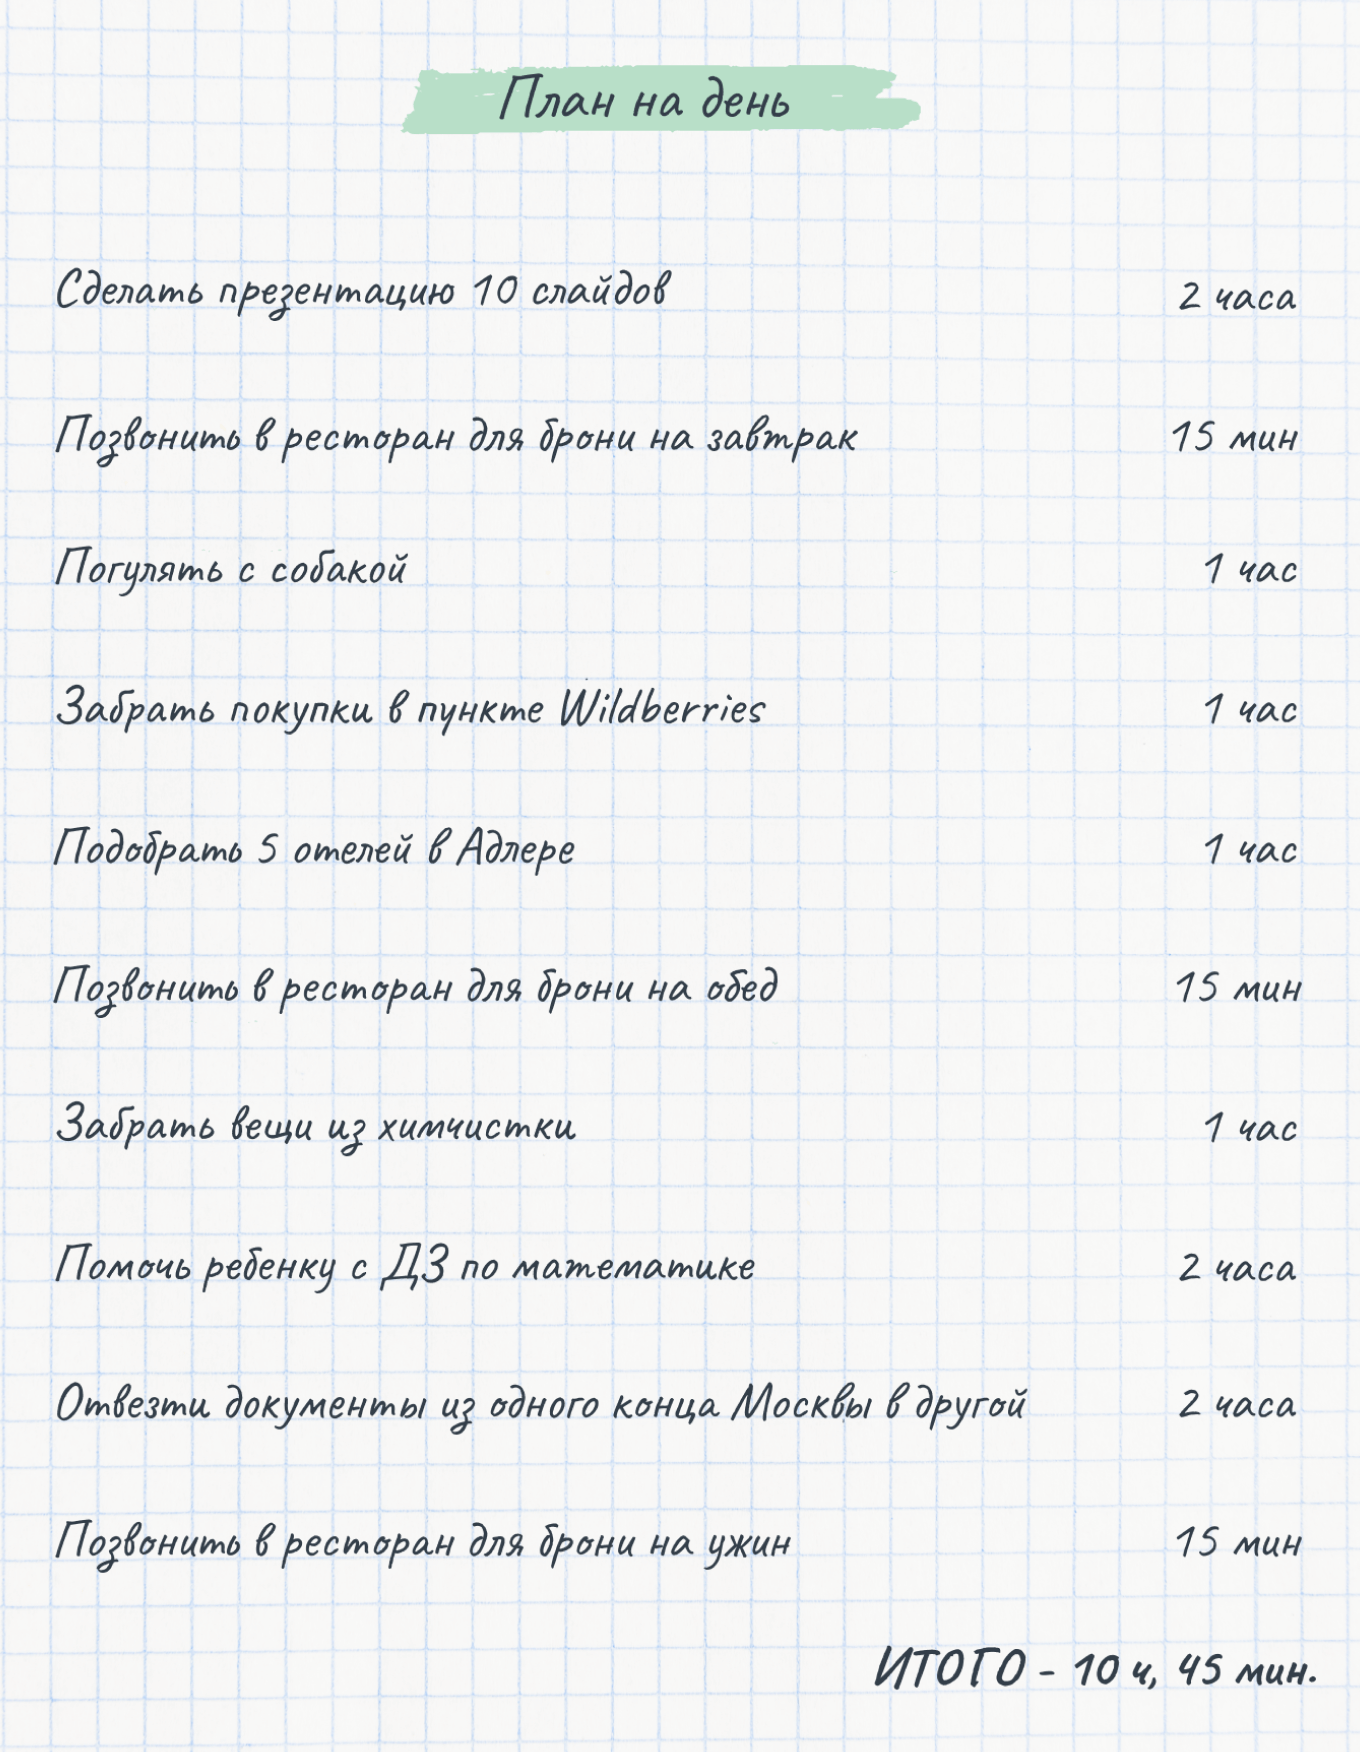 План на день
Сделать презентацию 10 слайдов 2 часа
Позвонить в ресторан для брони на завтрак 15 мин
Погулять с собакой 1 час
Забрать покупки в пункте Wildberries 1 час
Подобрать 5 отелей в Адлере 1 час
Позвонить в ресторан для брони на обед 15 мин
Забрать вещи из химчистки 1 час
Помочь ребенку с ДЗ по математике 2 часа
Отвезти документы из одного конца Москвы в другой 2 часа
Позвонить в ресторан для брони на ужин 15 мин
ИТОГО - 10 ч, 45 мин.